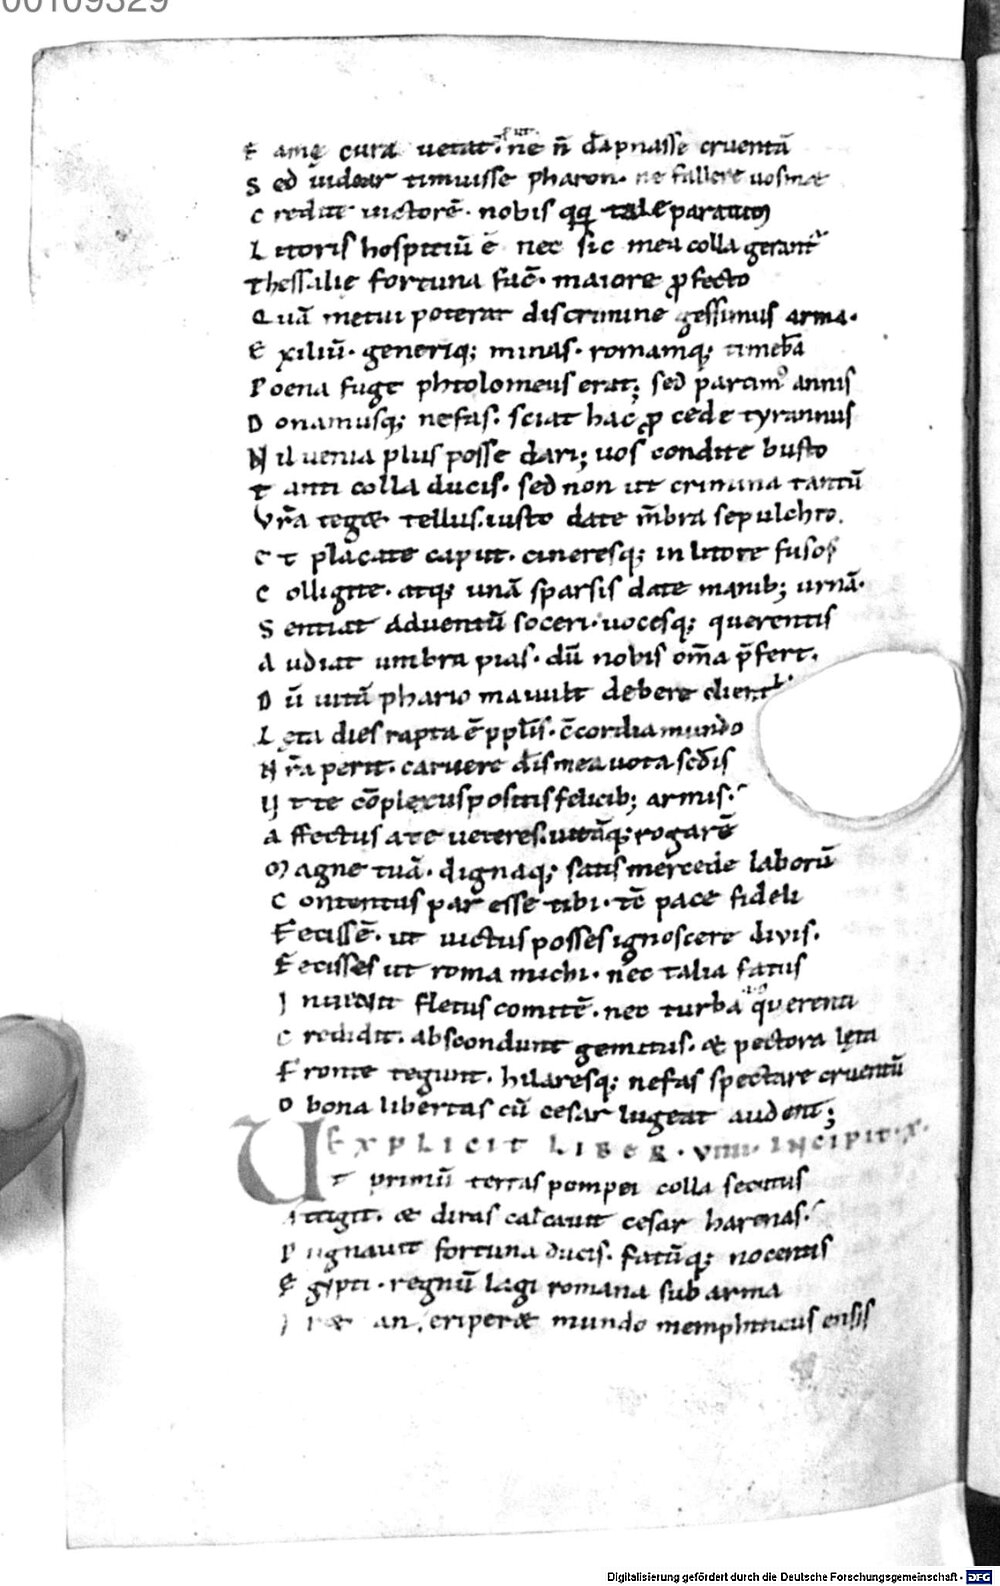 00109329
F amę cura uetat. ne ñ dāpnasse cruentā
S ed uidear timuisse pharon. ne fallere uosmæ
C redite uictorē. nobis qq; tale paratum
L itoris hospitiū ē nec sic mea colla gerant
Thessalię fortuna fac̄. maiore ꝓfecto
Q uā metui poterat discrimine gessimus arma.
E xiliū. generiq; minas. romamq; timebā
P oena fuge phtolomeus erat; sed parcim᷒ annis
D onamusq; nefas. sciat hac ꝓ cede tyrannus
N il uenia plus posse dari; uos condite busto
T anti colla ducis. sed non ut crimina tantū
Vr̄a tegæ tellus. iusto date m̄bra sepulchro.
E t placate caput. cineresq; in litore fusos
C olligite. atq; unā sparsis date manib; urnā.
S entiat aduentū soceri. uocesq; querentis
A udiat umbra pias. dū nobis om̄a p̄fert.
D ū uitā phario mauult debere clienti.
L ęta dies rapta ē ppl̄is. c̄cordia mundo
N r̄a perit. caruere d̄is mea uota scd̄is
U t te cōplexus positis felicib; armis.
A ffectus a te ueteres. uitāq; rogarē
M agne tuā. dignaq; satis mercede laborū
C ontentus par esse tibi. tc̄ pace fideli
F ecissē. ut uictus posses ignoscere diuis.
F ecisses ut roma michi. nec talia fatus
I nuenit fletus comitē. nec turba querenti
C redidit. abscondunt gemitus. & pectora lęta
F ronte tegunt. hilaresq; nefas spectare cruentū
O bona libertas cū cesar lugeat audent;
EXPLICIT LIBER. VIIII. INCIPIT. X.
U T primū terras pompei colla secutus
A ttigit. & diras calcauit cesar harenas.
P ugnauit fortuna ducis. fatūq; nocentis
E gypti. regnū lagi romana sub arma
I ræ an eriperæ mundo memphiticus ensis
Digitalisierung gefördert durch die Deutsche Forschungsgemeinschaft - DFG